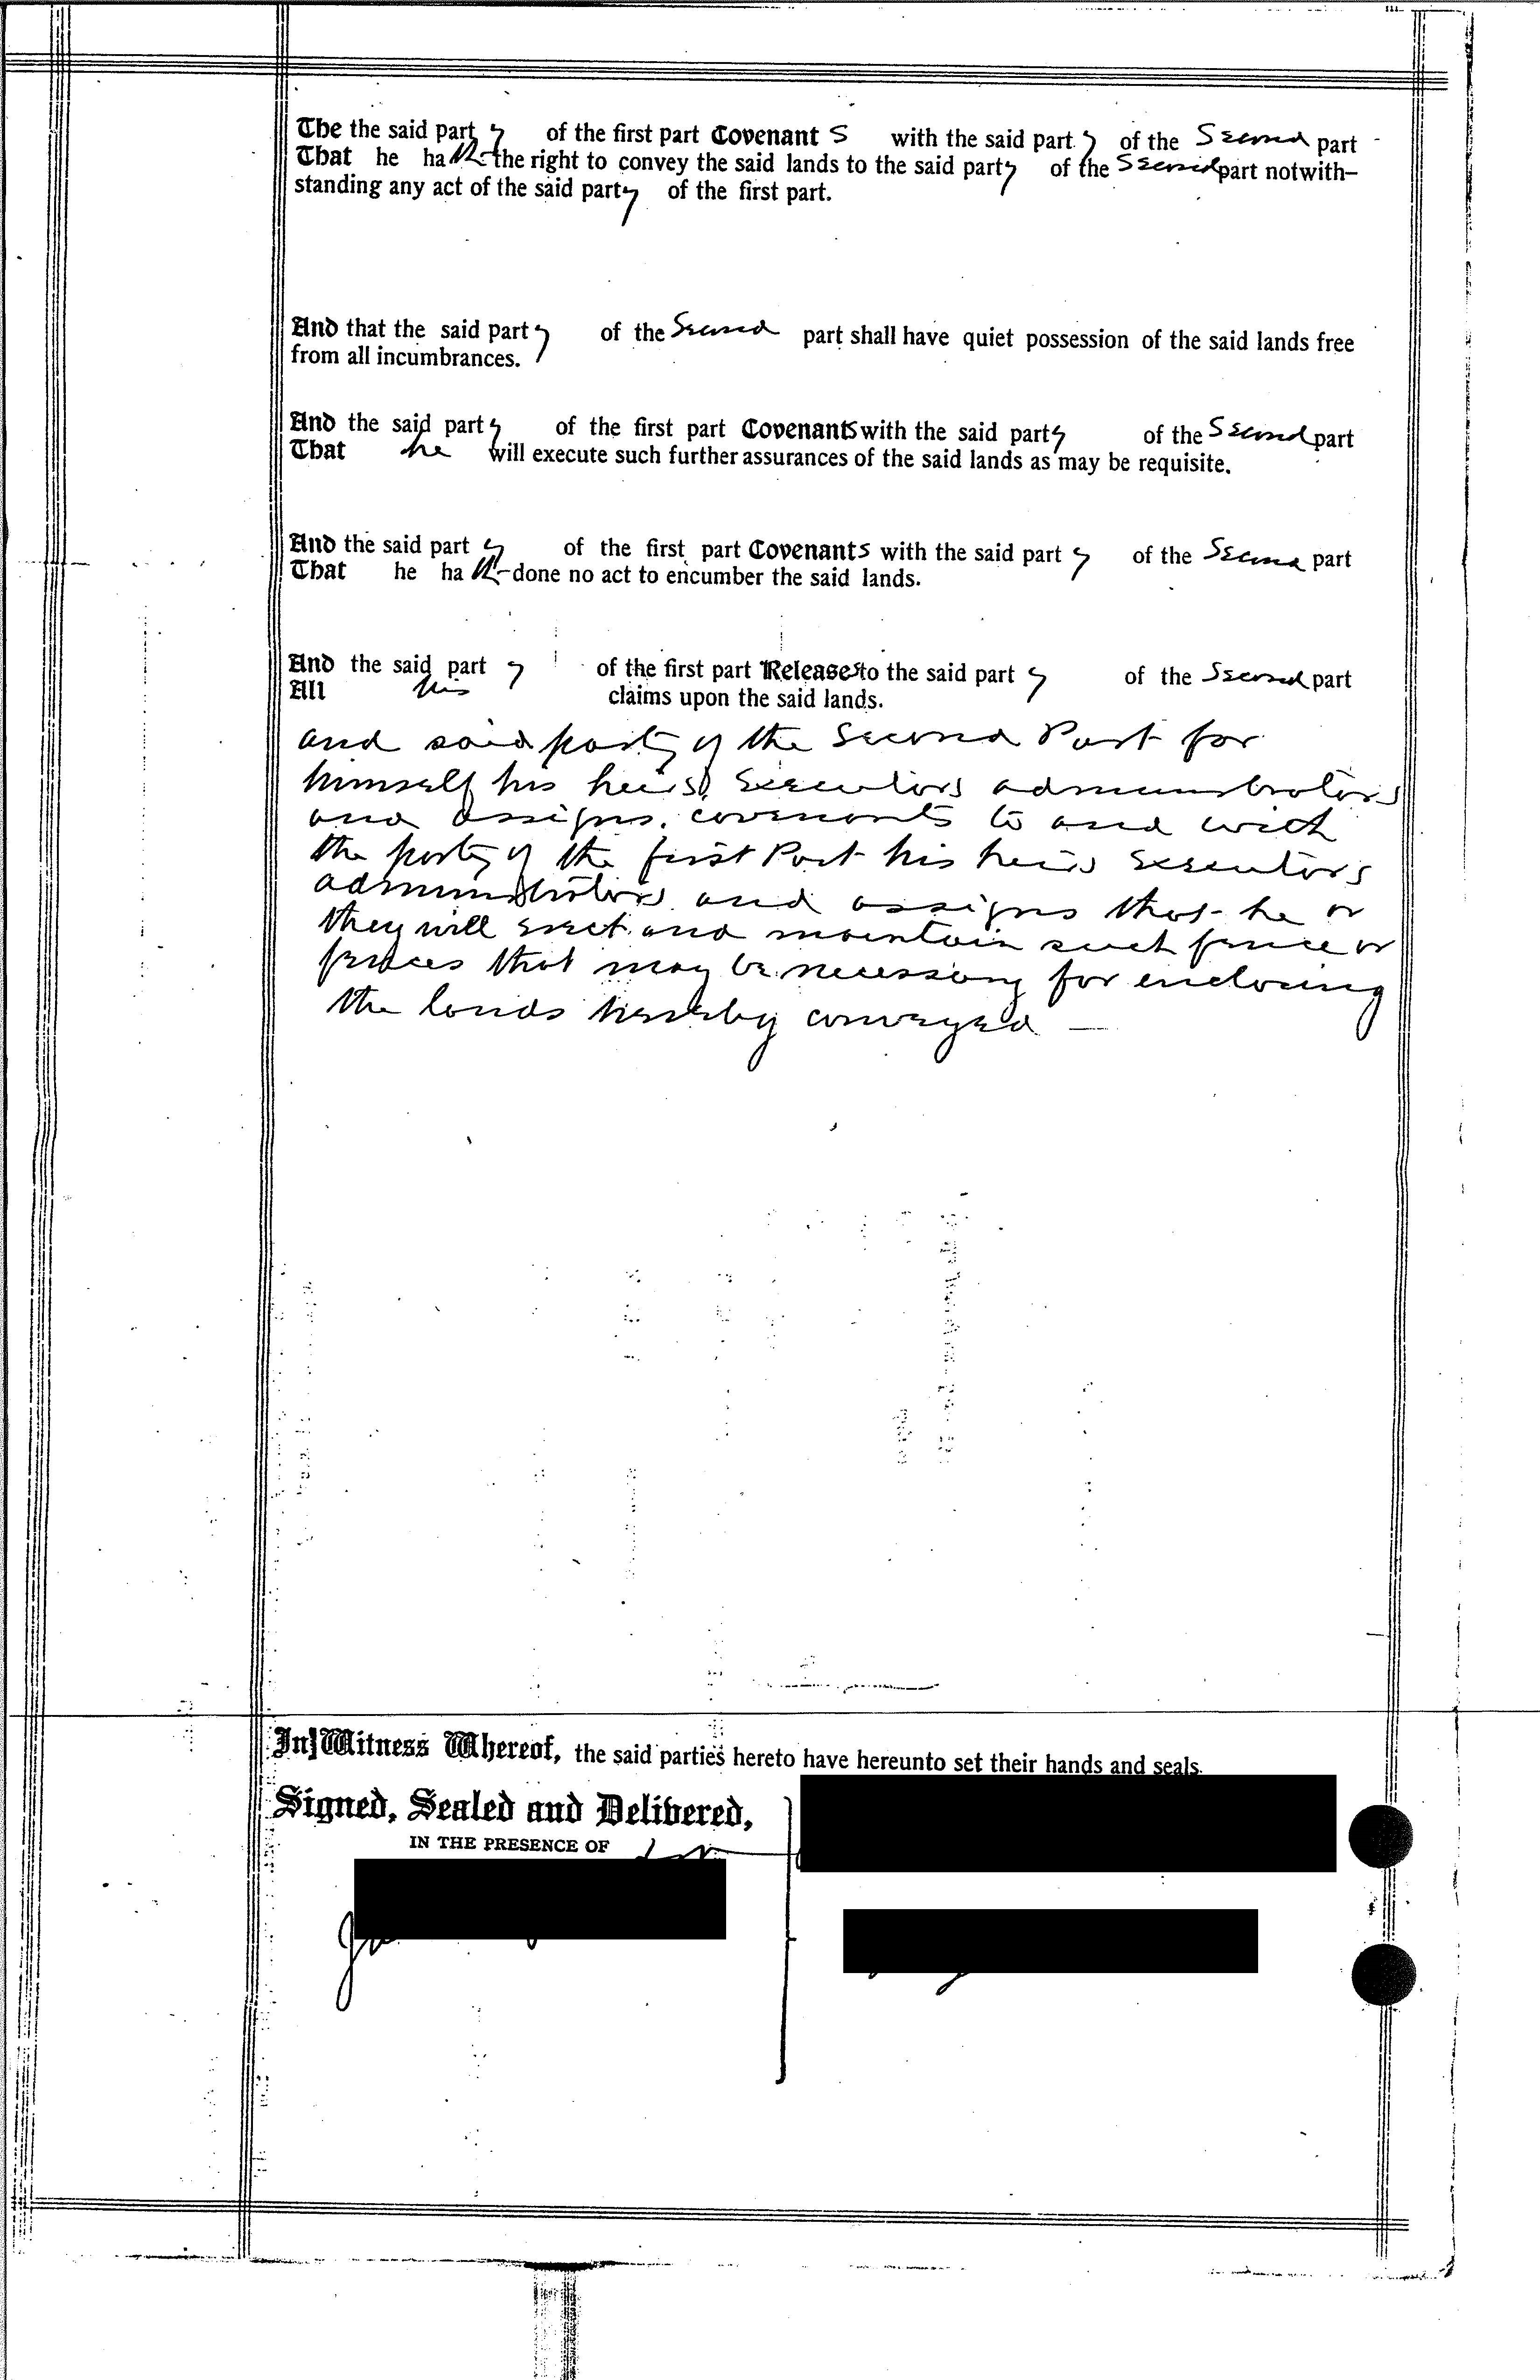 The the said party of the first part Covenant S with the said party of the Second part
That he hath the right to convey the said lands to the said party of the Second part notwith-
standing any act of the said party of the first part.
And that the said party of the Second part shall have quiet possession of the said lands free
from all incumbrances.
And the said party of the first part Covenants with the said party of the Second part
That he will execute such further assurances of the said lands as may be requisite.
And the said party of the first part Covenants with the said party of the Second part
That he hath done no act to encumber the said lands.
And the said party of the first part Releases to the said party of the Second part
All his claims upon the said lands.
and said party of the Second Part for
himself his heirs, Executors administrators
and assigns, covenants to and with
the party of the first Part his heirs Executors
administrators and assigns that he or
they will erect and maintain such fence or
fences that may be necessary for enclosing
the lands hereby conveyed —
In Witness Whereof, the said parties hereto have hereunto set their hands and seals.
Signed, Sealed and Delivered,
IN THE PRESENCE OF